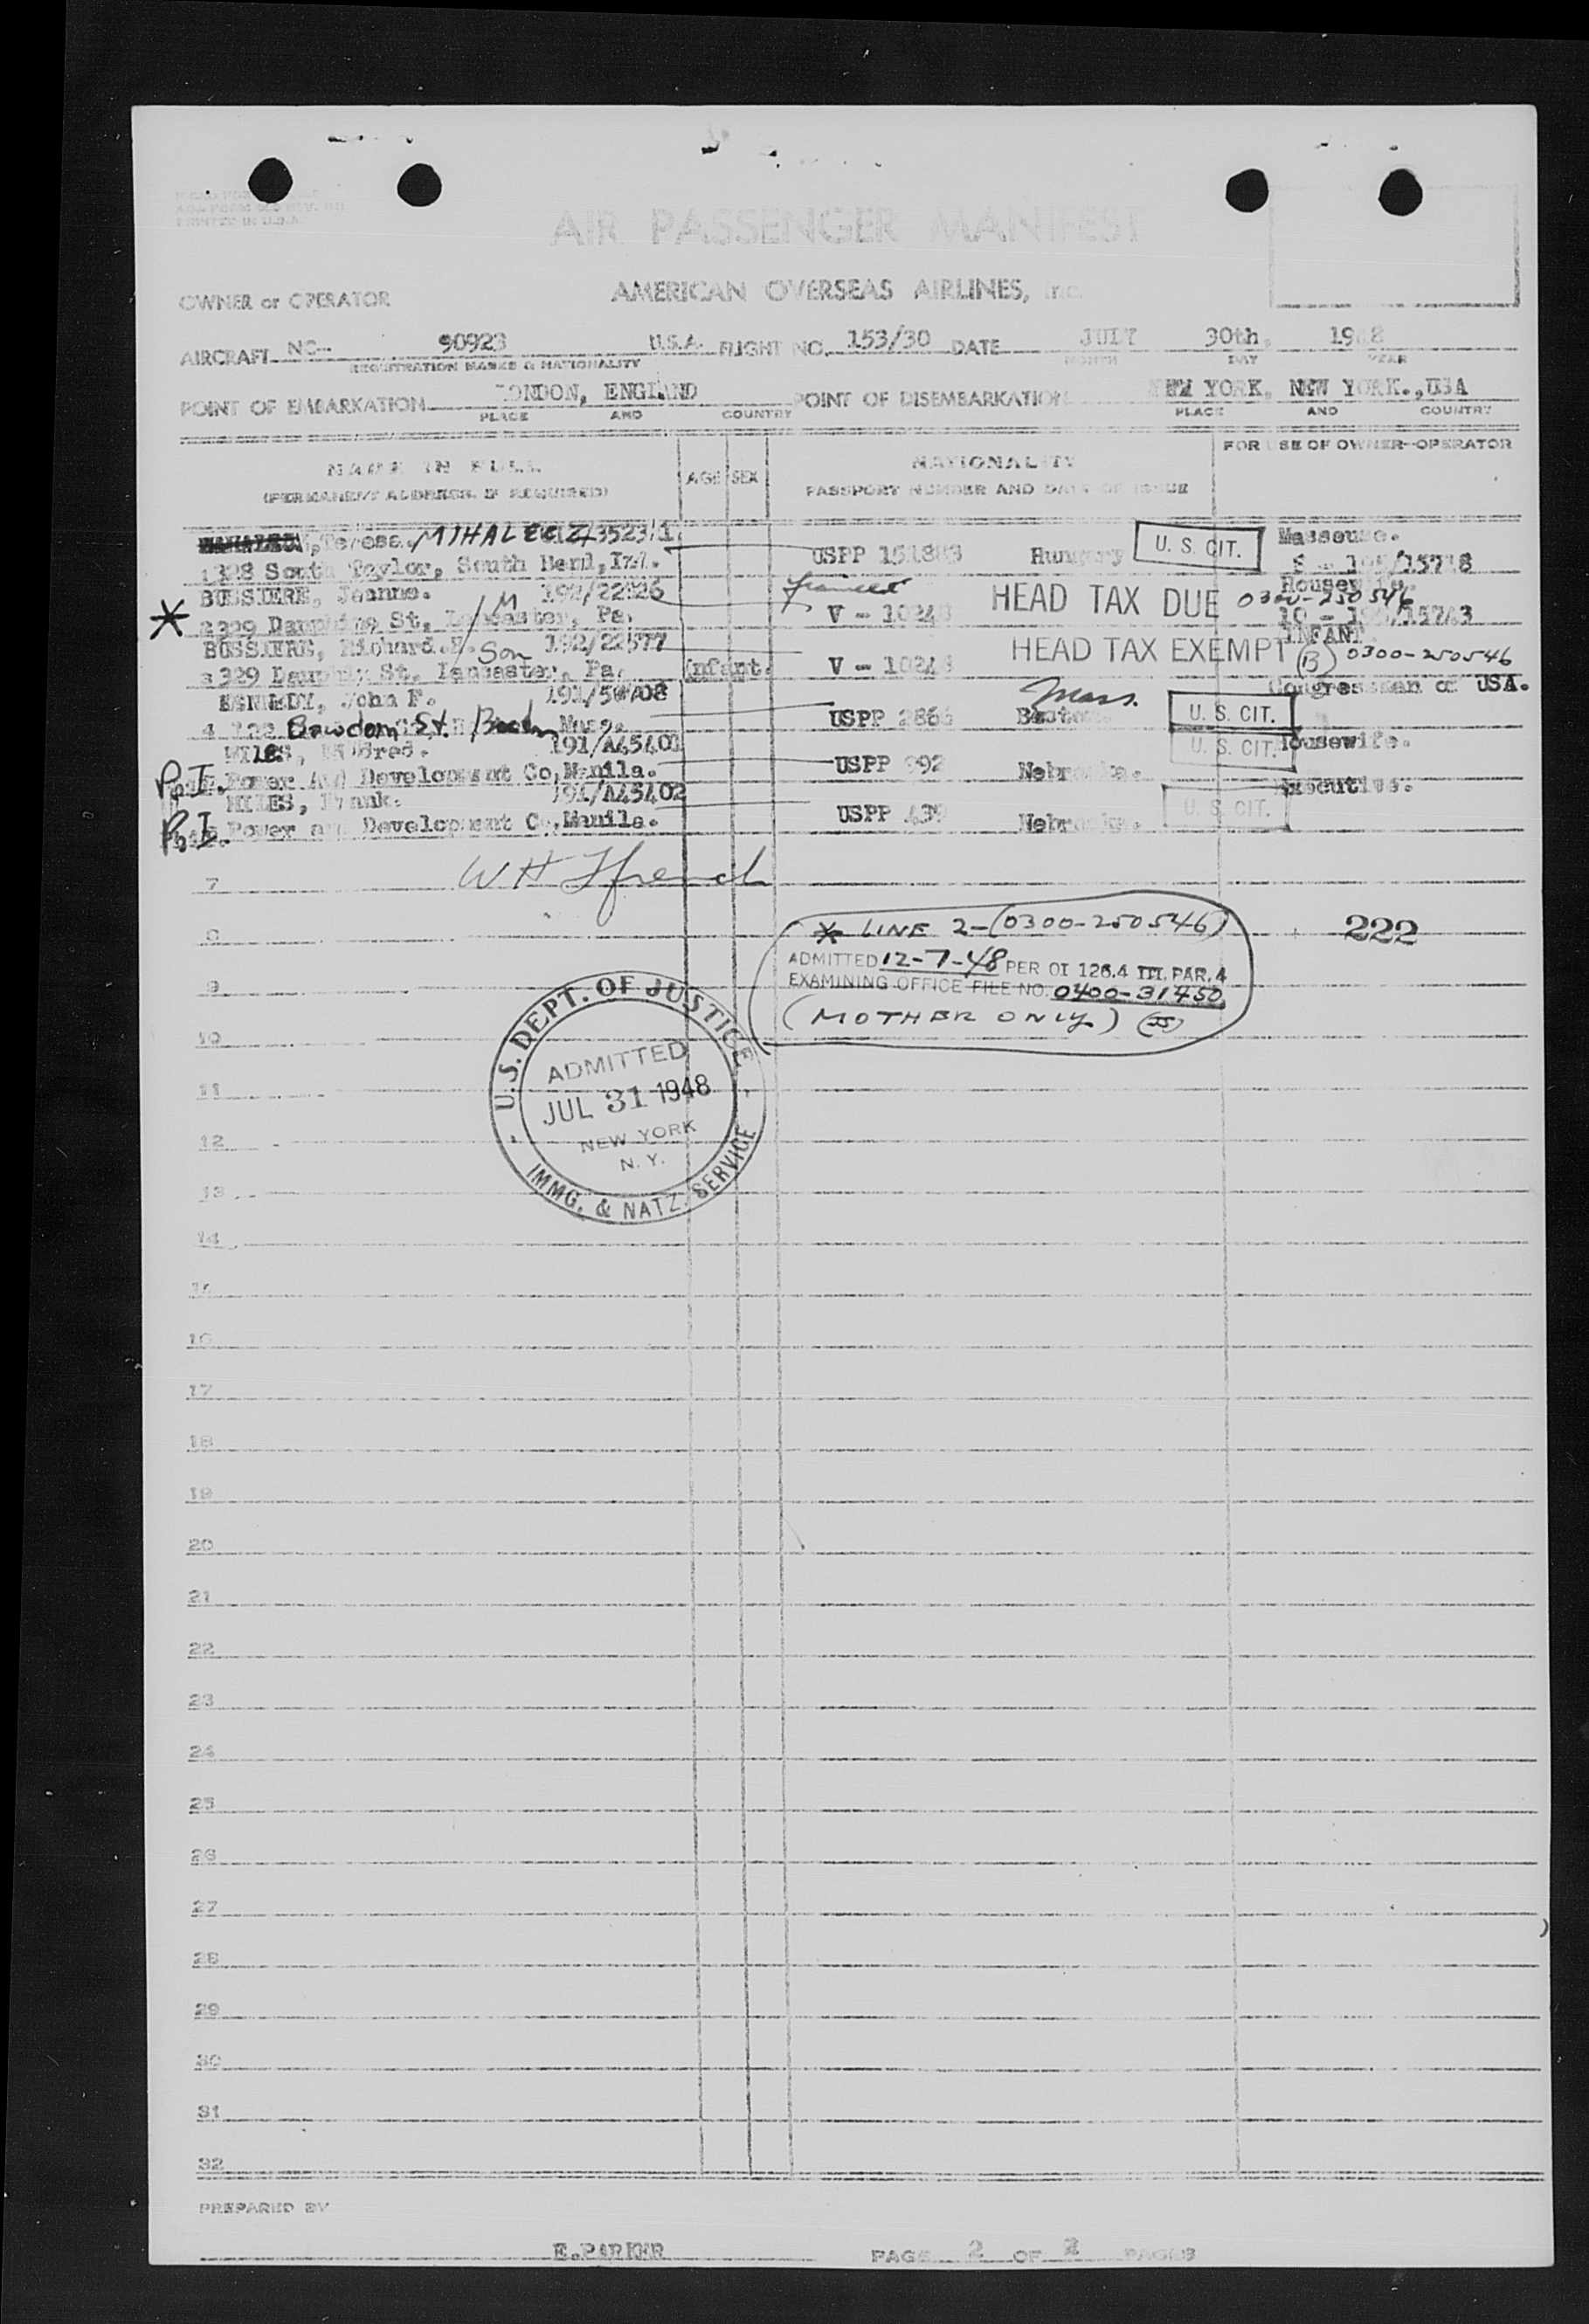 PRINTED IN U.S.A.
AIR PASSENGER MANIFEST
OWNER or OPERATOR AMERICAN OVERSEAS AIRLINES, Inc.
AIRCRAFT NC- 90923 U.S.A. FLIGHT NO. 153/30 DATE JULY 30th, 1948
REGISTRATION MARKS & NATIONALITY MONTH DAY YEAR
POINT OF EMBARKATION LONDON, ENGLAND POINT OF DISEMBARKATION NEW YORK, NEW YORK.,USA
PLACE AND COUNTRY PLACE AND COUNTRY
NAME IN FULL AGE SEX NATIONALITY FOR USE OF OWNER-OPERATOR
(PERMANENT ADDRESS IF REQUIRED) PASSPORT NUMBER AND DATE OF ISSUE
Teresa. MIHALECZ Masseuse.
1 South Taylor, South Bend, Ind. USPP Hungary U. S. CIT.
BUSSIERE, Jeanne. Housewife.
* 2 329 Dauphine St, Lancaster, Pa. M V - HEAD TAX DUE 0300-250546
BUSSIERE, Richard. Son 192/22577 INFANT.
3 329 St, Lancaster, Pa. Infant. V - HEAD TAX EXEMPT (B) 0300-250546
KENNEDY, John F. Mass. Congressman of USA.
4 Bowdoin St. Mass. USPP U. S. CIT.
MILES, Mildred. U. S. CIT. Housewife.
P.I. Power And Development Co, Manila. USPP Nebraska.
MILES, Frank. 191/A45402 Executive.
P.I. Power and Development Co, Manila. USPP Nebraska. U. S. CIT.
7 W H French
8 * LINE 2-(0300-250546) 222
ADMITTED 12-7-48 PER OI 126.4 III. PAR. 4
9 EXAMINING OFFICE FILE NO. 0400-31450
(MOTHER ONLY) (JJ)
10
U.S. DEPT. OF JUSTICE
ADMITTED
11
JUL 31 1948
12 NEW YORK
N. Y.
IMMG. & NATZ. SERVICE
13
14
15
16
17
18
19
20
21
22
23
24
25
26
27
28
29
30
31
32
PREPARED BY
E. PARKER PAGE 2 OF 2 PAGES